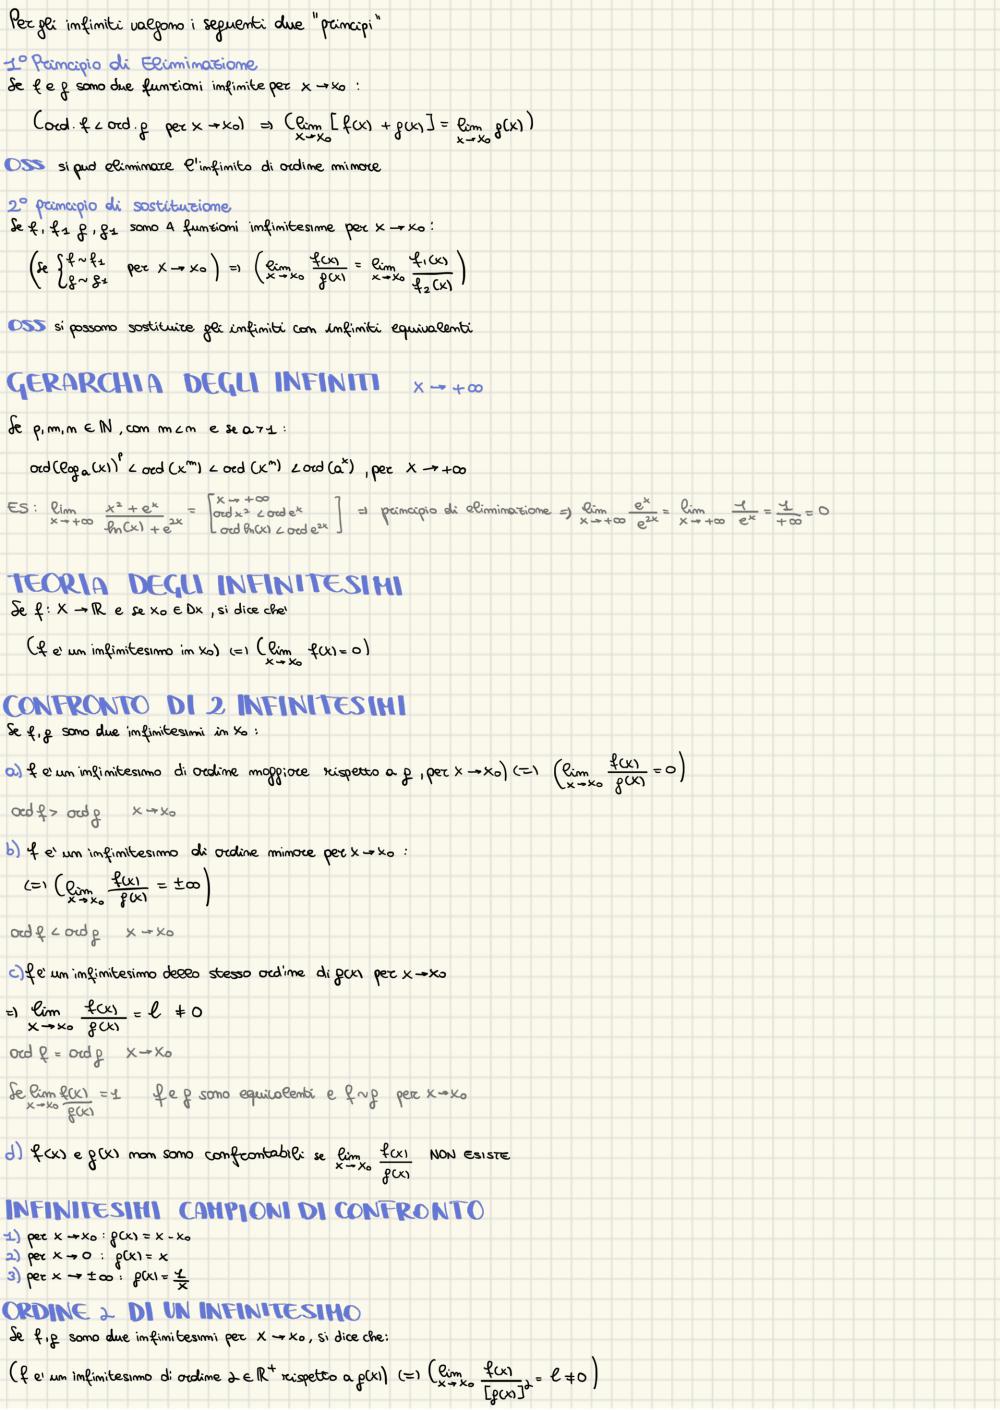 Per gli infiniti valgono i seguenti due "principi"
1° Principio di Eliminazione
Se f e g sono due funzioni infinite per x→x₀ :
(ord. f < ord. g per x→x₀) ⇒ (lim x→x₀ [f(x) + g(x)] = lim x→x₀ g(x))
OSS si può eliminare l'infinito di ordine minore
2° principio di sostituzione
Se f, f₁ g, g₁ sono 4 funzioni infinitesime per x→x₀ :
(Se { f~f₁ g~g₁ per x→x₀) ⇒ (lim x→x₀ f(x)/g(x) = lim x→x₀ f₁(x)/f₂(x))
OSS si possono sostituire gli infiniti con infiniti equivalenti
GERARCHIA DEGLI INFINITI x→+∞
Se p,m,n ∈ ℕ, con m<n e se a>1 :
ord(logₐ(x))ᵖ < ord(xᵐ) < ord(xⁿ) < ord(aˣ), per x→+∞
ES: lim x→+∞ x² + eˣ / ln(x) + e²ˣ = [x→+∞ ord x² < ord eˣ ord ln(x) < ord e²ˣ] ⇒ principio di eliminazione ⇒ lim x→+∞ eˣ/e²ˣ = lim x→+∞ 1/eˣ = 1/+∞ = 0
TEORIA DEGLI INFINITESIMI
Se f: X→ℝ e se x₀ ∈ Dx, si dice che'
(f e' un infinitesimo in x₀) (=) (lim x→x₀ f(x) = 0)
CONFRONTO DI 2 INFINITESIMI
Se f, g sono due infinitesimi in x₀ :
a) f e' un infinitesimo di ordine maggiore rispetto a g, per x→x₀) (=) (lim x→x₀ f(x)/g(x) = 0)
ord f > ord g x→x₀
b) f e' un infinitesimo di ordine minore per x→x₀ :
(=) (lim x→x₀ f(x)/g(x) = ±∞)
ord f < ord g x→x₀
c) f e' un infinitesimo dello stesso ord'ine di g(x) per x→x₀
=) lim x→x₀ f(x)/g(x) = l ≠ 0
ord f = ord g x→x₀
Se lim x→x₀ f(x)/g(x) = 1 f e g sono equivalenti e f~g per x→x₀
d) f(x) e g(x) non sono confrontabili se lim x→x₀ f(x)/g(x) NON ESISTE
INFINITESIMI CAMPIONI DI CONFRONTO
1) per x→x₀ : g(x) = x-x₀
2) per x→0 : g(x) = x
3) per x→±∞ : g(x) = 1/x
ORDINE α DI UN INFINITESIMO
Se f, g sono due infinitesimi per x→x₀, si dice che:
(f e' un infinitesimo di ordine α ∈ ℝ⁺ rispetto a g(x)) (=) (lim x→x₀ f(x)/[g(x)]^α = l ≠ 0)